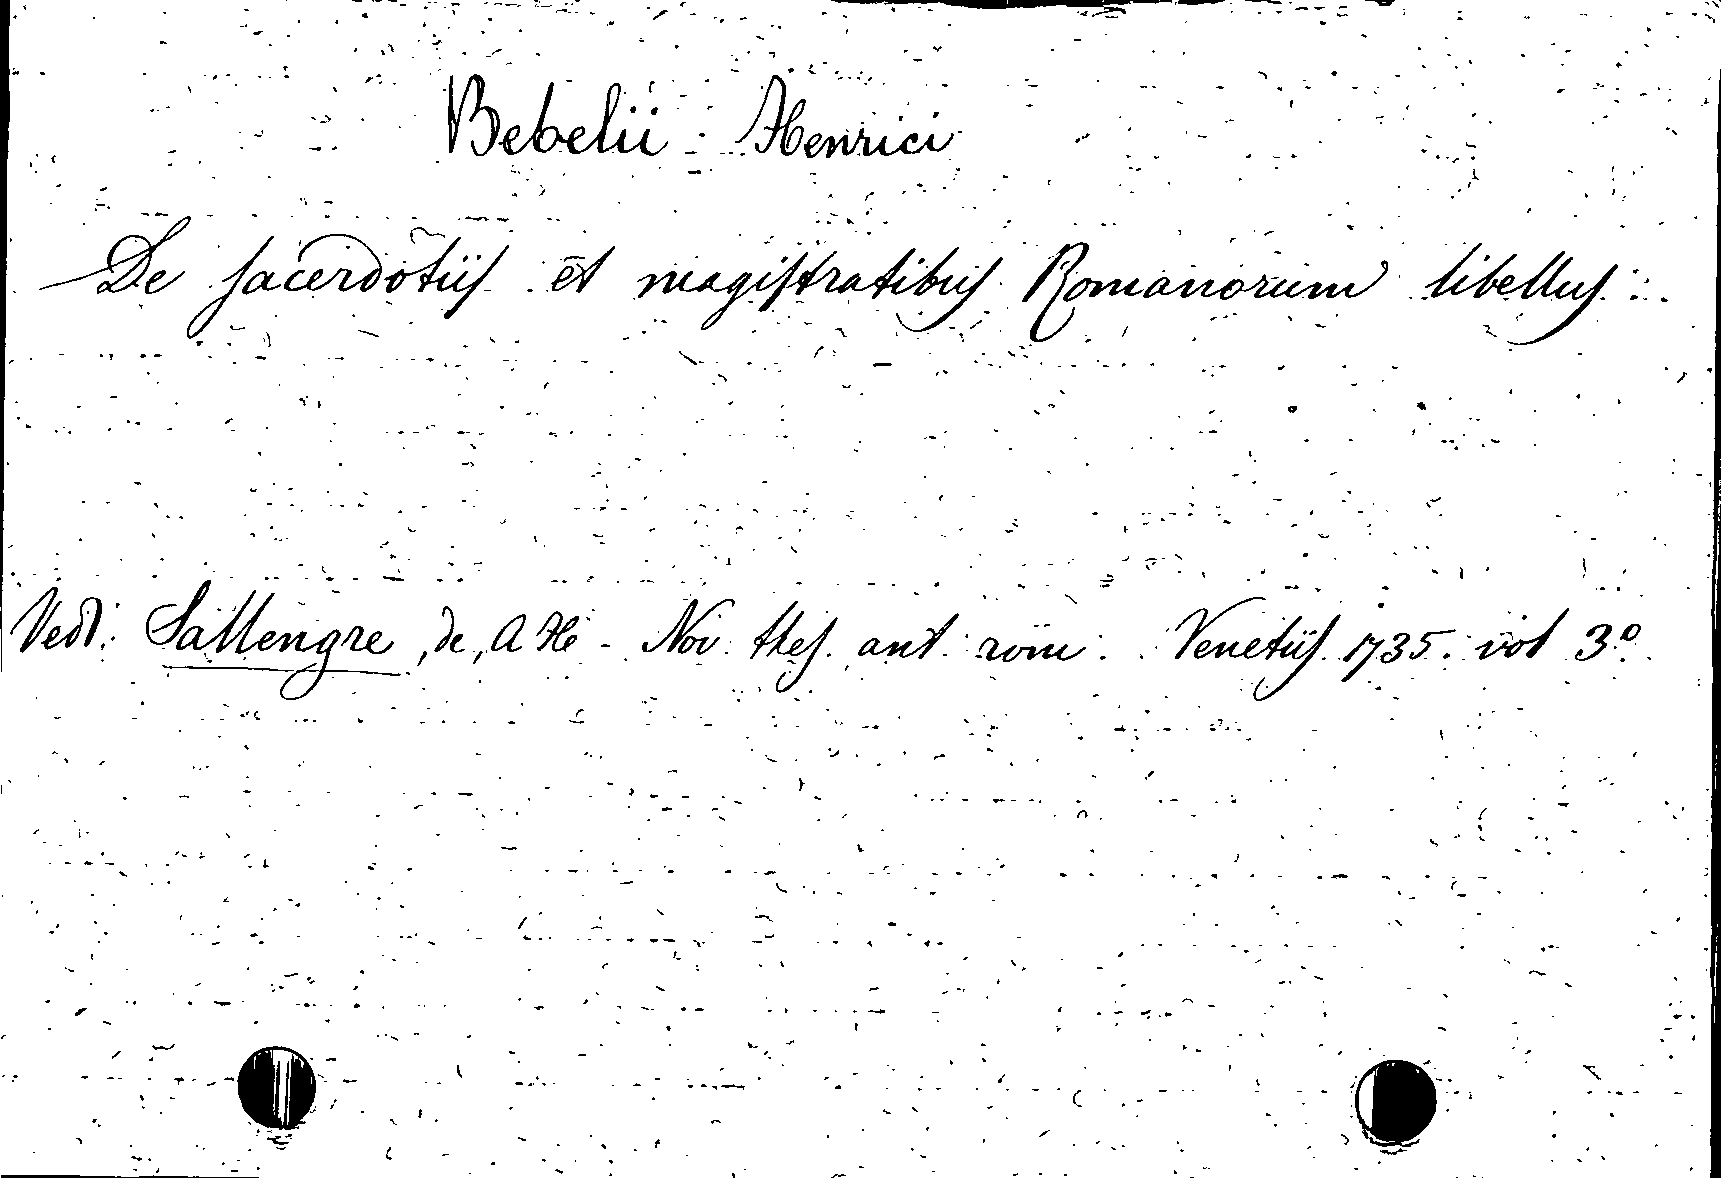 Bebelii Henrici
De sacerdotiis et magistratibus Romanorum libellus.
Vedi: Sallengre, de, A H. - Nov. thes. ant. rom. Venetiis. 1735. vol 3º.